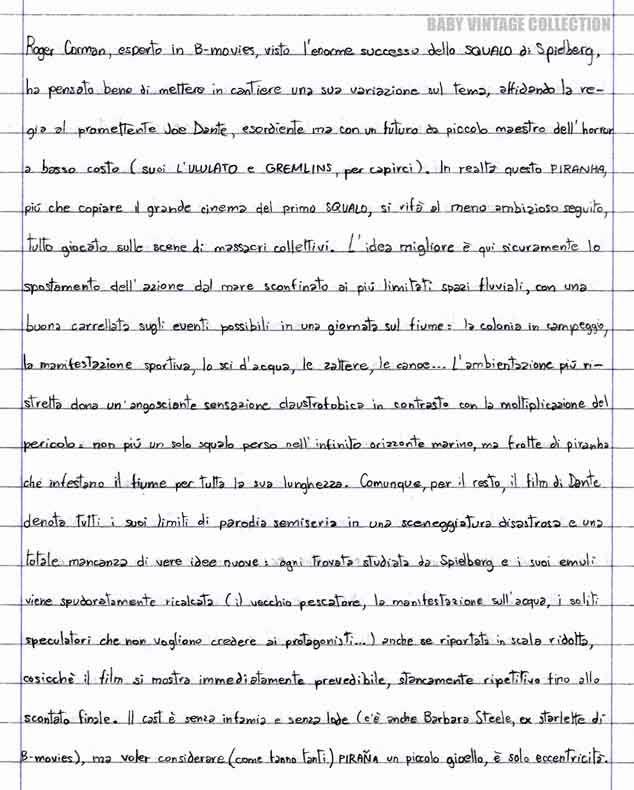 BABY VINTAGE COLLECTION
Roger Corman, esperto in B-movies, visto l'enorme successo dello SQUALO di Spielberg,
ha pensato bene di mettere in cantiere una sua variazione sul tema, affidando la re-
gia al promettente Joe Dante, esordiente ma con un futuro da piccolo maestro dell'horror
a basso costo (suoi L'ULULATO e GREMLINS, per capirci). In realtà questo PIRANHA,
più che copiare il grande cinema del primo SQUALO, si rifà al meno ambizioso seguito,
tutto giocato sulle scene di massacri collettivi. L'idea migliore è qui sicuramente lo
spostamento dell'azione dal mare sconfinato ai più limitati spazi fluviali, con una
buona carrellata sugli eventi possibili in una giornata sul fiume: la colonia in campeggio,
la manifestazione sportiva, lo sci d'acqua, le zattere, le canoe... L'ambientazione più ri-
stretta dona un'angosciante sensazione claustrofobica in contrasto con la moltiplicazione del
pericolo: non più un solo squalo perso nell'infinito orizzonte marino, ma frotte di piranha
che infestano il fiume per tutta la sua lunghezza. Comunque, per il resto, il film di Dante
denota tutti i suoi limiti di parodia semiseria in una sceneggiatura disastrosa e una
totale mancanza di vere idee nuove: ogni trovata studiata da Spielberg e i suoi emuli
viene spudoratamente ricalcata (il vecchio pescatore, la manifestazione sull'acqua, i soliti
speculatori che non vogliono credere ai protagonisti...) anche se riportata in scala ridotta,
cosicchè il film si mostra immediatamente prevedibile, stancamente ripetitivo fino allo
scontato finale. Il cast è senza infamia e senza lode (c'è anche Barbara Steele, ex starlette di
B-movies), ma voler considerare (come fanno tanti) PIRAÑA un piccolo gioello, è solo eccentricità.